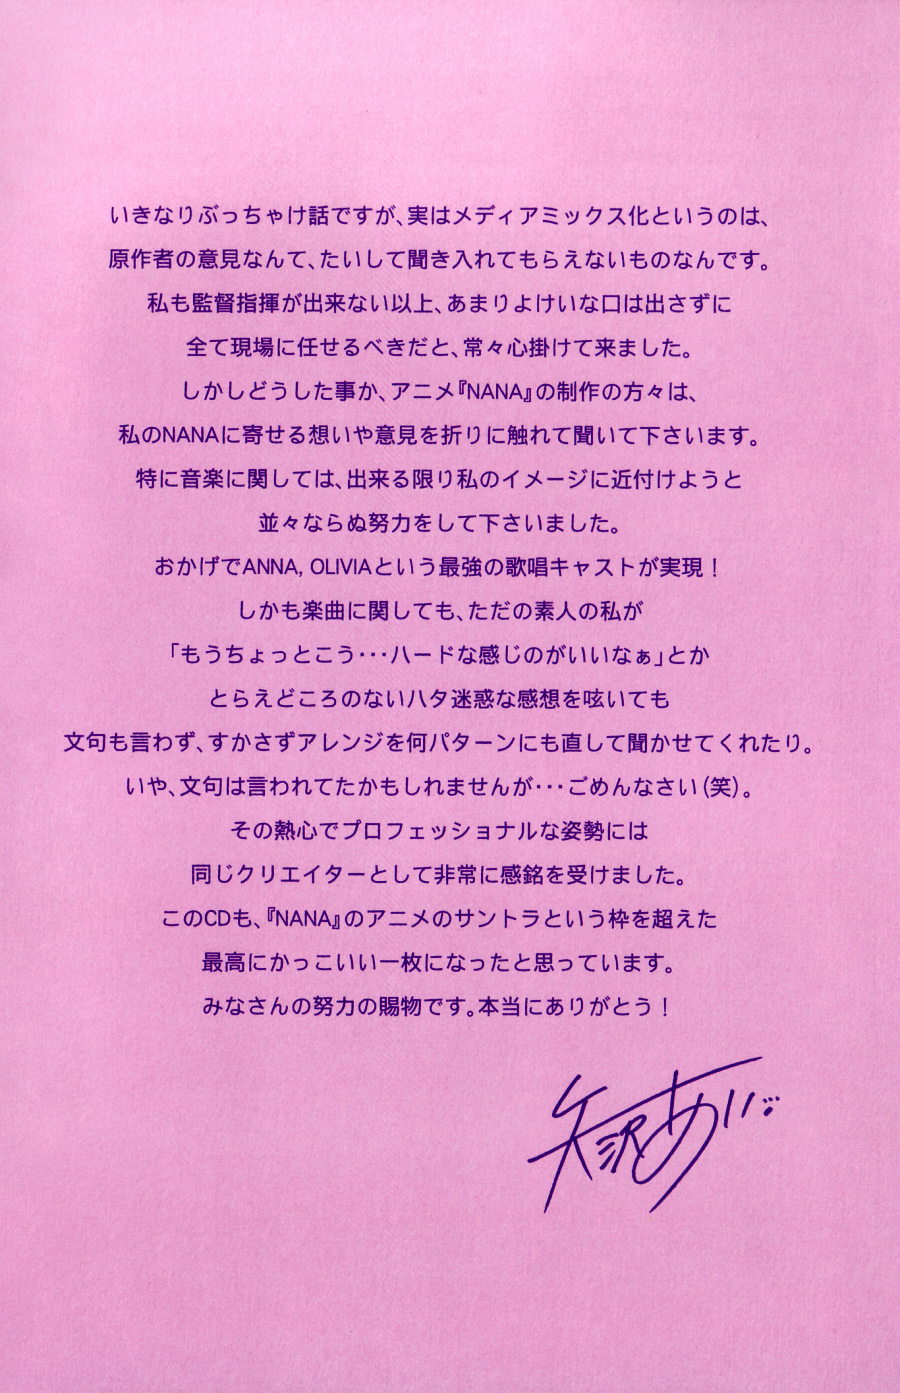 いきなりぶっちゃけ話ですが、実はメディアミックス化というのは、
原作者の意見なんて、たいして聞き入れてもらえないものなんです。
私も監督指揮が出来ない以上、あまりよけいな口は出さずに
全て現場に任せるべきだと、常々心掛けて来ました。
しかしどうした事か、アニメ『NANA』の制作の方々は、
私のNANAに寄せる想いや意見を折りに触れて聞いて下さいます。
特に音楽に関しては、出来る限り私のイメージに近付けようと
並々ならぬ努力をして下さいました。
おかげでANNA, OLIVIAという最強の歌唱キャストが実現！
しかも楽曲に関しても、ただの素人の私が
「もうちょっとこう･･･ハードな感じのがいいなぁ」とか
とらえどころのないハタ迷惑な感想を呟いても
文句も言わず、すかさずアレンジを何パターンにも直して聞かせてくれたり。
いや、文句は言われてたかもしれませんが･･･ごめんなさい(笑)。
その熱心でプロフェッショナルな姿勢には
同じクリエイターとして非常に感銘を受けました。
このCDも、『NANA』のアニメのサントラという枠を超えた
最高にかっこいい一枚になったと思っています。
みなさんの努力の賜物です。本当にありがとう！
矢沢あい